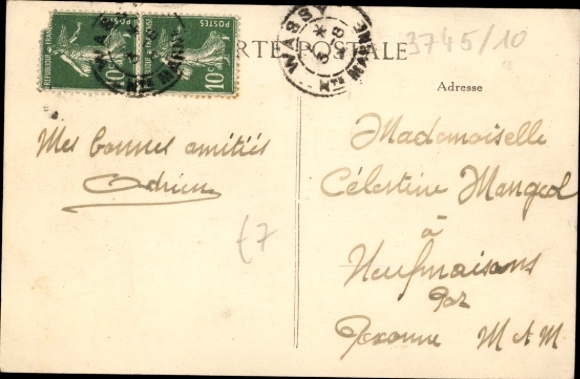 CARTE POSTALE
3745/10
WASSY
Hte MARNE
POSTES
10c
RÉPUBLIQUE FRANÇAISE
POSTES
10c
Adresse
Mes bonnes amitiés
Adrien
£7
Mademoiselle
Célestine Mangeol
à
Neufmaisons
par
Pexonne M et M